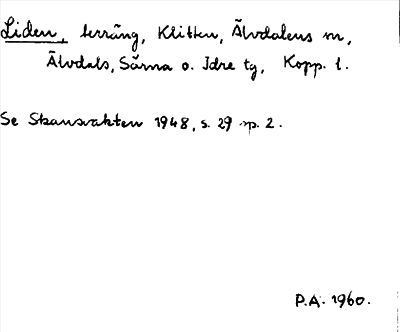 Liden, terräng, Klitten, Älvdalens sn,
Älvdals, Särna o. Idre tg, Kopp. l.
Se Skansvakten 1948, s. 29 sp. 2.
P.A. 1960.